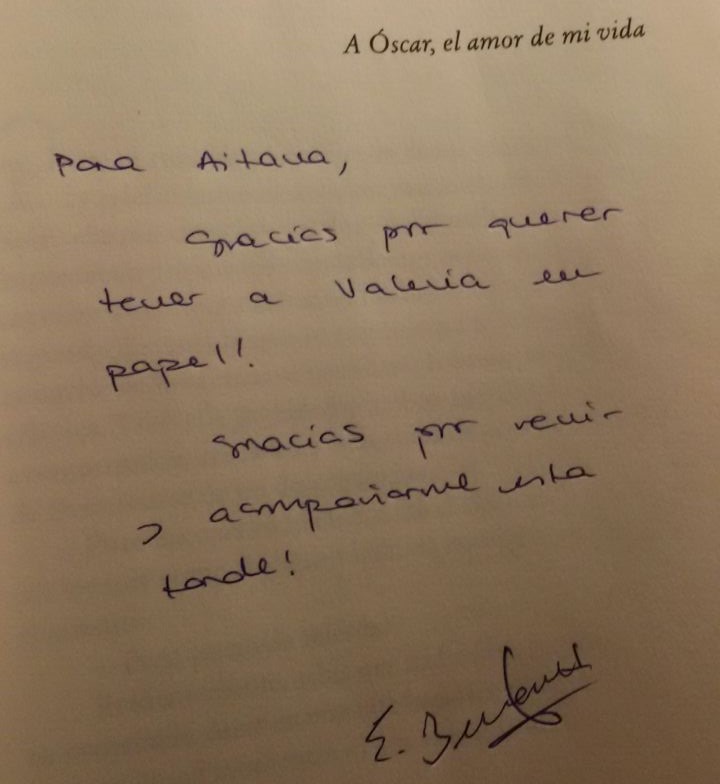 A Óscar, el amor de mi vida
Para Aitana,
Gracias por querer
tener a Valeria en
papel!!
Gracias por venir
y acompañarme esta
tarde!
E. Benavent